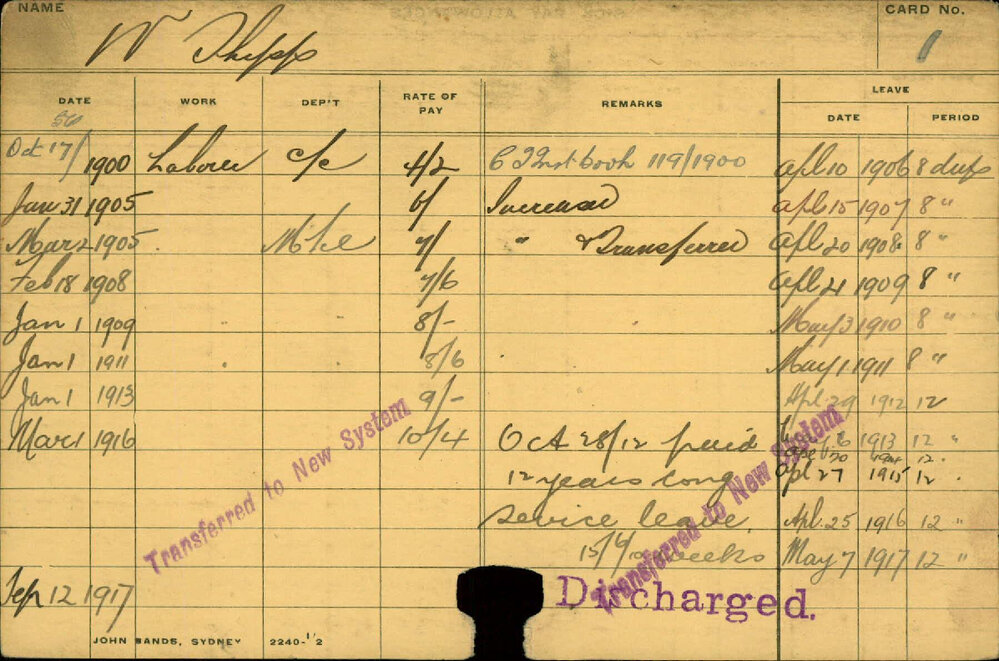 NAME CARD No.
W 1
DATE WORK DEP'T RATE OF PAY REMARKS LEAVE
DATE PERIOD
Oct 17/ 1900 Laborer C/C 4/2 119/1900 Apl 10 1906 8 days
Jan 31 1905 6/ Increase Apl 15 1907 8 "
Mar 2 1905 7/ " & Transferred Apl 20 1908 8 "
Feb 18 1908 7/6 Apl 21 1909 8 "
Jan 1 1909 8/- May 3 1910 8 "
Jan 1 1911 8/6 May 1 1911 8 "
Jan 1 1913 9/- Apl 29 1912 12
Mar 1 1916 10/4 Oct 28/12 paid 1913 12 "
20 1914 12 "
12 years long Apl 27 1915 12 "
service leave Apl 25 1916 12 "
weeks May 7 1917 12 "
Transferred to New System
Transferred to New System
Sep 12 1917 Discharged.
JOHN SANDS, SYDNEY 2240-1/2